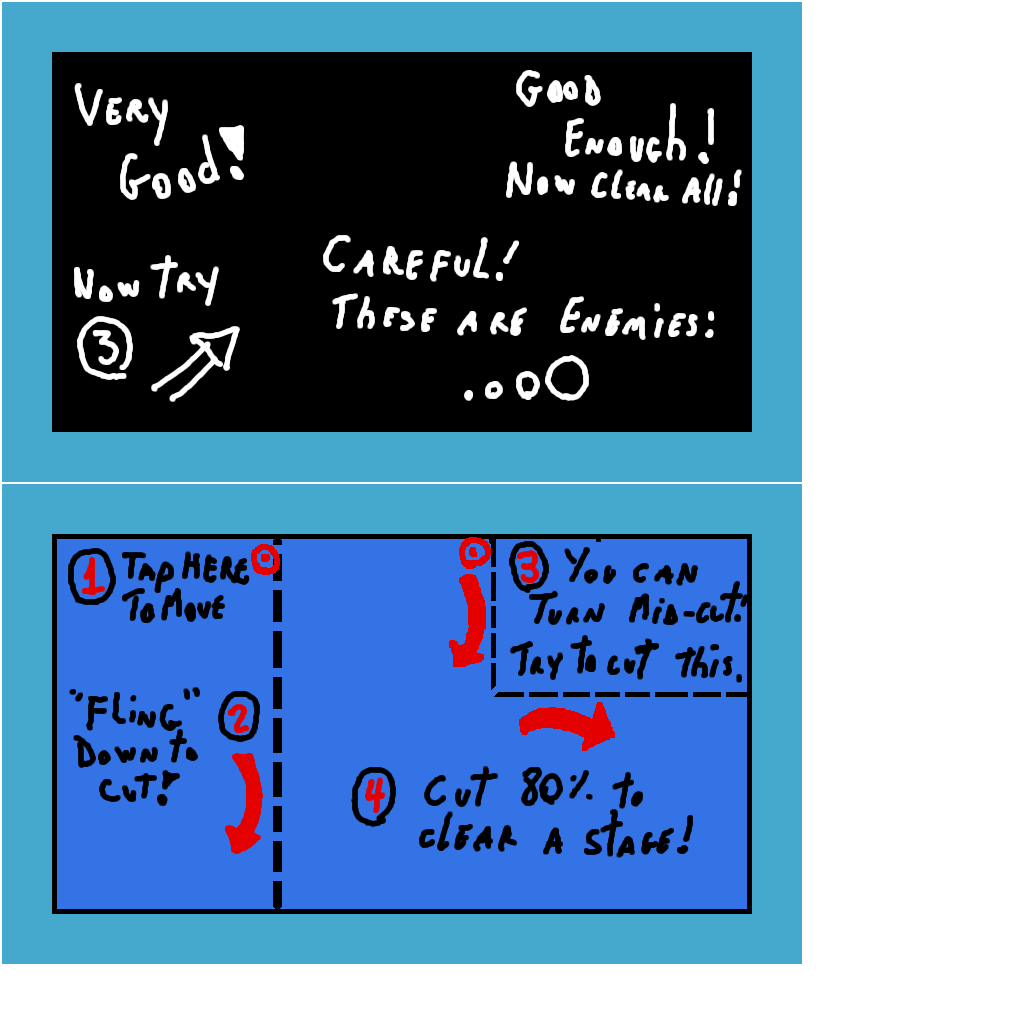 VERY
GOOD!
GOOD
ENOUGH!
NOW CLEAR ALL!
NOW TRY
3
CAREFUL!
THESE ARE ENEMIES:
1 TAP HERE
TO MOVE
"FLING" 2
DOWN TO
CUT!
3 YOU CAN
TURN MID-CUT!
TRY TO CUT THIS.
4 CUT 80% TO
CLEAR A STAGE!